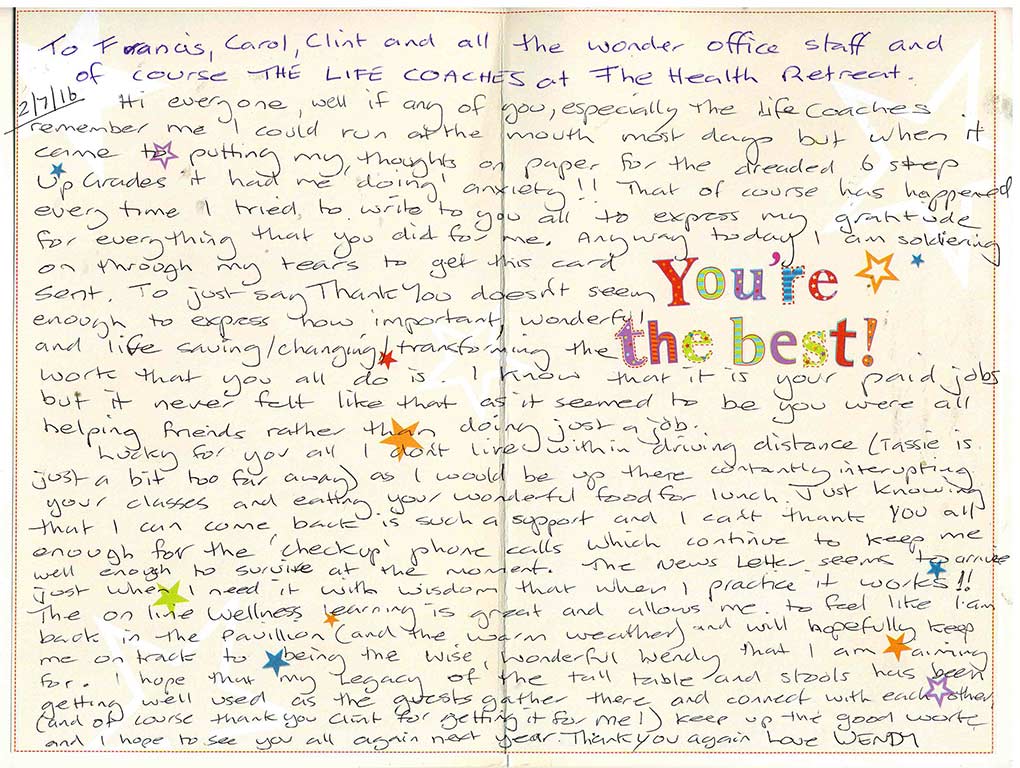 To Francis, Carol, Clint and all the wonder office staff and
of course THE LIFE COACHES at The Health Retreat.
2/7/16
Hi everyone, well if any of you, especially the Life Coaches
remember me I could run at the mouth most days but when it
came to putting my thoughts on paper for the dreaded 6 step
Up Grades it had me 'doing' anxiety!! That of course has happened
every time I tried to write to you all to express my gratitude
for everything that you did for me. Anyway today I am soldiering
on through my tears to get this card
sent. To just say Thank You doesn't seem
enough to express how important, wonderful
and life saving/changing/transforming the
You're
the best!
work that you all do is. I know that it is your paid jobs
but it never felt like that as it seemed to be you were all
helping friends rather than doing just a job.
Lucky for you all I don't live within driving distance (Tassie is
just a bit too far away) as I would be up there contantly interupting
your classes and eating your wonderful food for lunch. Just knowing
that I can come back is such a support and I can't thank you all
enough for the 'checkup' phone calls which continue to keep me
well enough to survive at the moment. The News Letter seems to arrive
just when I need it with wisdom that when I practice it works!!
The on line Wellness learning is great and allows me. to feel like I am
back in the Pavillion (and the warm weather) and will hopefully keep
me on track to being the wise, wonderful Wendy that I am aiming
for. I hope that my Legacy of the tall table and stools has been
getting well used as the guests gather there and connect with each other
(and of course thank you Clint for getting it for me!) keep up the good work
and I hope to see you all again next year. Thank you again Love WENDY